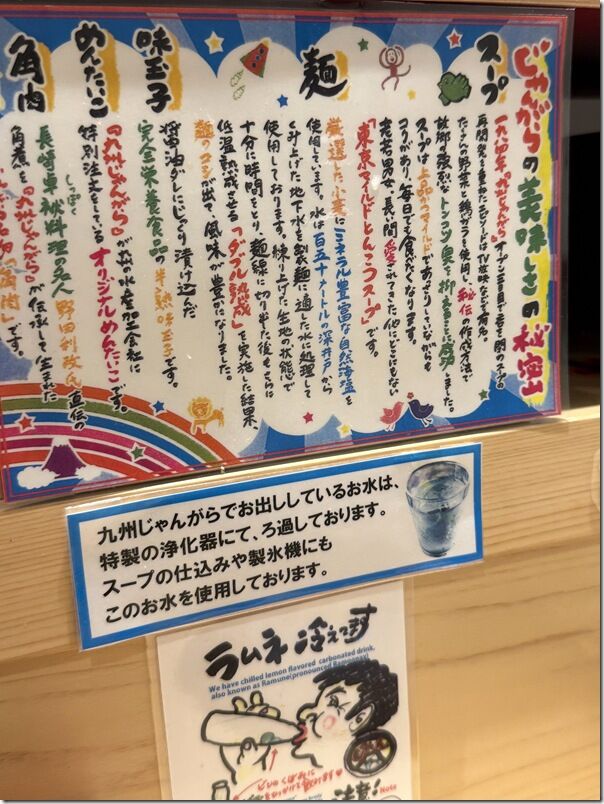 じゃんがらの美味しさの秘密
スープ
一九八四年『九州じゃんがら』オープン
たくさんの野菜と鶏ガラを使用し、秘伝の作成方法で
スープは上品かつマイルドであっさりしていながらも
コクがあり、毎日でも食べたくなります。
老若男女、長い間愛されてきた他にどこにもない
「東京マイルドとんこつスープ」です。
麺
厳選した小麦にミネラル豊富な自然海塩を
使用しています。水は百五十メートルの深井戸から
くみ上げた地下水を製麺に適した水処理して
使用しております。練り上げた生地の状態で
十分に時間をとり、麺線に切り出した後もさらに
低温熟成させる「ダブル熟成」を実施した結果、
麺のコシが出て、風味が豊富になりました。
味玉子
醤油ダレにじっくり漬け込んだ
完全栄養食品の半熟味玉子です。
めんたいこ
『九州じゃんがら』が九州の水産加工会社に
特別注文をしているオリジナルめんたいこです。
角肉
長崎卓袱料理の名人 野田利政氏直伝の
しっぽく
角煮を『九州じゃんがら』が伝承して生まれた
「角肉」です。
九州じゃんがらでお出ししているお水は、
特製の浄化器にて、ろ過しております。
スープの仕込みや製氷機にも
このお水を使用しております。
ラムネ冷えてます
We have chilled lemon flavored carbonated drink,
also known as Ramune(pronounced Ramoonay)
注意!
Note